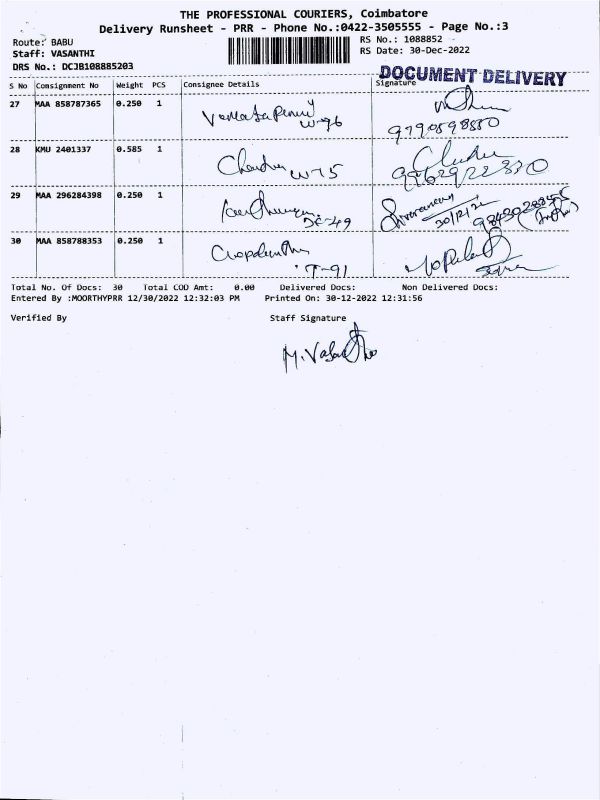 THE PROFESSIONAL COURIERS, Coimbatore
Delivery Runsheet - PRR - Phone No.:0422-3505555 - Page No.:3
Route: BABU
Staff: VASANTHI
DRS No.: DCJB108885203
RS No.: 1088852
RS Date: 30-Dec-2022
DOCUMENT DELIVERY
S No Consignment No Weight PCS Consignee Details Signature
27 MAA 858787365 0.250 1
W-96
9790598550
28 KMU 2401337 0.585 1
W-15
29 MAA 296284398 0.250 1
30/12/22
30 MAA 858788353 0.250 1
T-91
Total No. Of Docs: 30 Total COD Amt: 0.00 Delivered Docs: Non Delivered Docs:
Entered By :MOORTHYPRR 12/30/2022 12:32:03 PM Printed On: 30-12-2022 12:31:56
Verified By Staff Signature